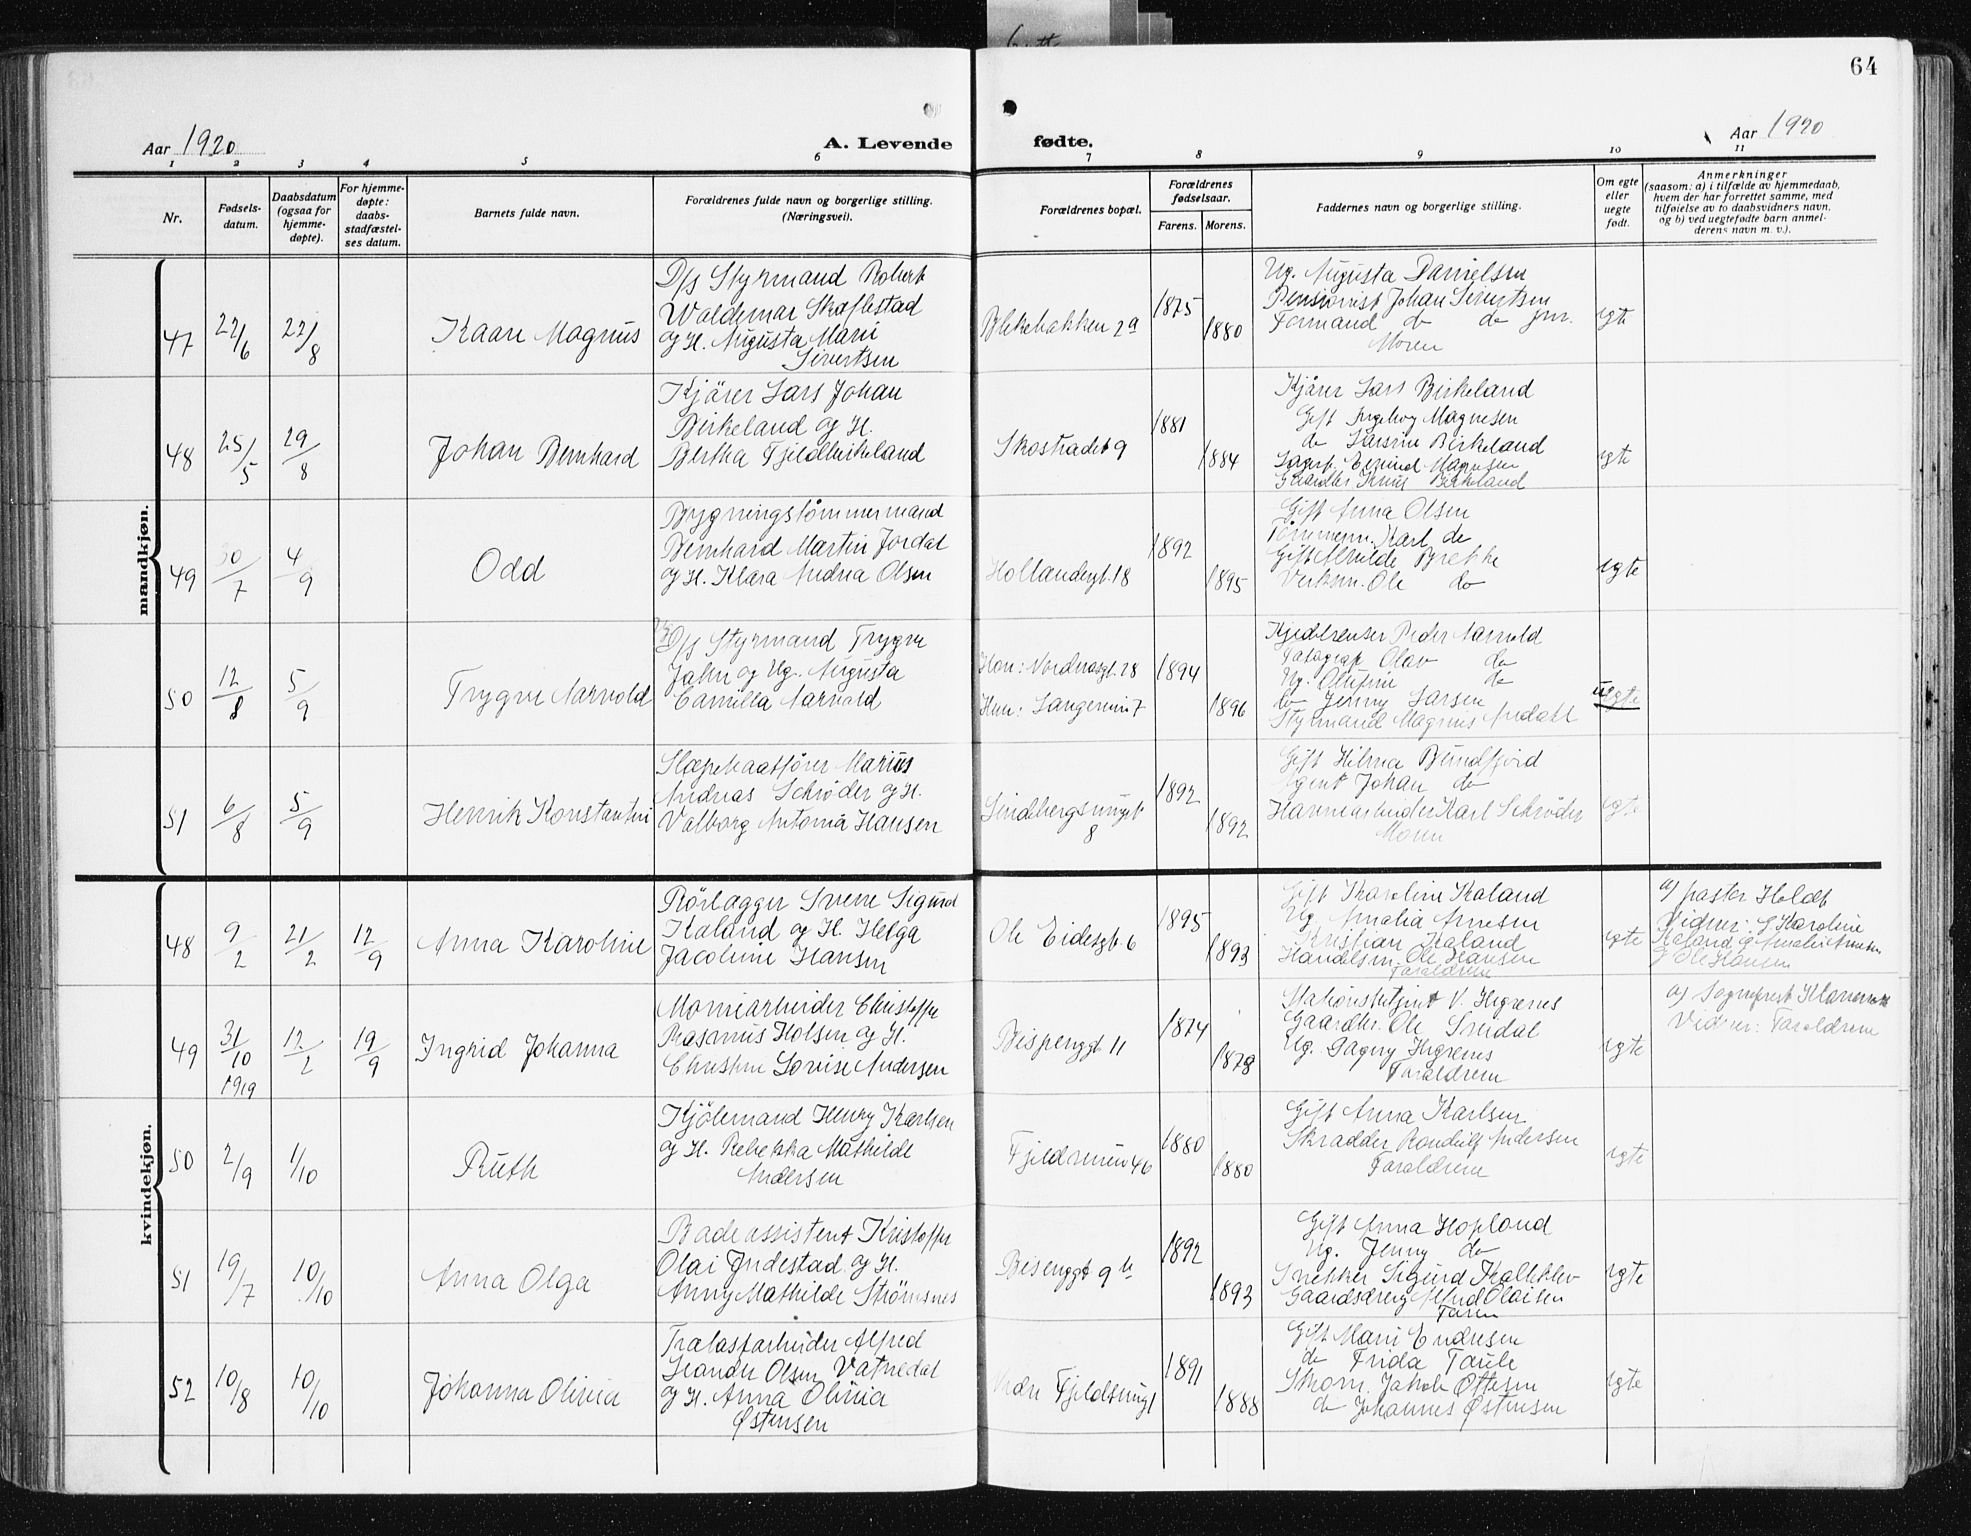 64
Aar 1920
A. Levende
fødte.
Aar 1920
1 2 3 4 5 6 7 8 9 10 11
Nr.
Fødsels-
datum.
Daabsdatum
(ogsaa for
hjemme-
døpte).
For hjemme-
døpte:
daabs-
stadfæstel-
ses datum.
Barnets fulde navn.
Forældrenes fulde navn og borgerlige stilling.
(Næringsvei).
Forældrenes bopæl.
Forældrenes
fødselsaar.
Farens. Morens.
Faddernes navn og borgerlige stilling.
Om egte
eller
uegte
født.
Anmerkninger
(saasom: a) i tilfælde av hjemmedaab,
hvem der har forrettet samme, med
tilføielse av to daabsvidners navn.
og b) ved uegtefødte barn anmel-
derens navn m. v.).
mandkjøn.
47
22/6
22/8
Kaare Magnus
D/s Styrmand Robert
Waldemar Skaflestad
og H. Augusta Marie
Sivertsen
Blekebakken 2a
1875
1880
Ug. Augusta Danielsen
Pensionist Johan Sivertsen
Formand do do jnr.
Moren
egte
48
25/5
29/8
Johan Bernhard
Kjører Lars Johan
Birkeland og H.
Bertha Fjeldbirkeland
Skostrædet 9
1881
1884
Kjører Lars Birkeland
Gift Ingeborg Magnesen
do Birkeland
Magnesen
Gaardbr. Birkeland
egte
49
30/7
4/9
Odd
Bygningstømmermand
Bernhard Martin Jordal
og H. Klara Andrea Olsen
Hollendergt. 18
1892
1895
Gift Anna Olsen
Tømmerm. Karl do
Gift Alvilde Brekke
Verksm. Ole do
egte
50
12/8
5/9
Trygve Narvold
D/s Styrmand Trygve
Jahn og Ug. Augusta
Camilla Narvold
Han: Nordnæsgt. 28
Hun: 7
1894
1896
Peder Narvold
Olav do
Ug. Olufine do
do Jenny Larsen
Styrmand Magnus
uegte
51
6/8
5/9
Henrik Konstantin
Slæpebaatfører Marius
Andreas Schrøder og H.
Valborg Antonia Hansen
8
1892
1892
Gift Hilma Bundfjord
Agent Johan do
Havnearbeider Karl Schrøder
Moren
egte
kvindekjøn.
48
9/2
21/2
12/9
Anna Karoline
Rørlægger Sverre Sigurd
Kaland og H. Helga
Jacobine Hansen
Ole Eidesgt. 6
1895
1893
Gift Karoline Kaland
Ug. Amalia Arnesen
Kristian Kaland
Handelsm. Ole Hansen
Forældrene
egte
a) pastor Holdt
Vidner: G Karoline
Kaland og Amalie Arnesen
Ole Hansen
49
31/10
1919
12/2
19/9
Ingrid Johanna
Christoffer
Rasmus Holsen og H.
Christine Lovise Andersen
Bispenggt 11
1874
1878
Stationsbetjent V. Hegrenes
Gaardbr. Ole
Ug. Dagny Hegrenes
Forældrene
egte
a) Sogneprest
Vidner: Forældrene
50
2/9
1/10
Ruth
Kjølemand Henry Karlsen
og H. Rebekka Mathilde
Andersen
46
1880
1880
Gift Anna Karlsen
Skrædder Andersen
Forældrene
egte
51
19/7
10/10
Anna Olga
Badeassistent Kristoffer
Olai Indestad og H.
Anny Mathilde Strømsnes
9 b
1892
1893
Gift Anna Hopland
Ug. Jenny do
Snekker Sigurd
Gaardsdreng Alfred Olaisen
Faren
egte
52
10/8
10/10
Johanna Olivia
Trælastarbeider Alfred
Leander Olsen Vatnedal
og H. Anna Olivia
Østensen
1
1891
1888
Gift Marie Endresen
do Frida Taule
Skom. Jakob Ottesen
do Johannes Østensen
egte